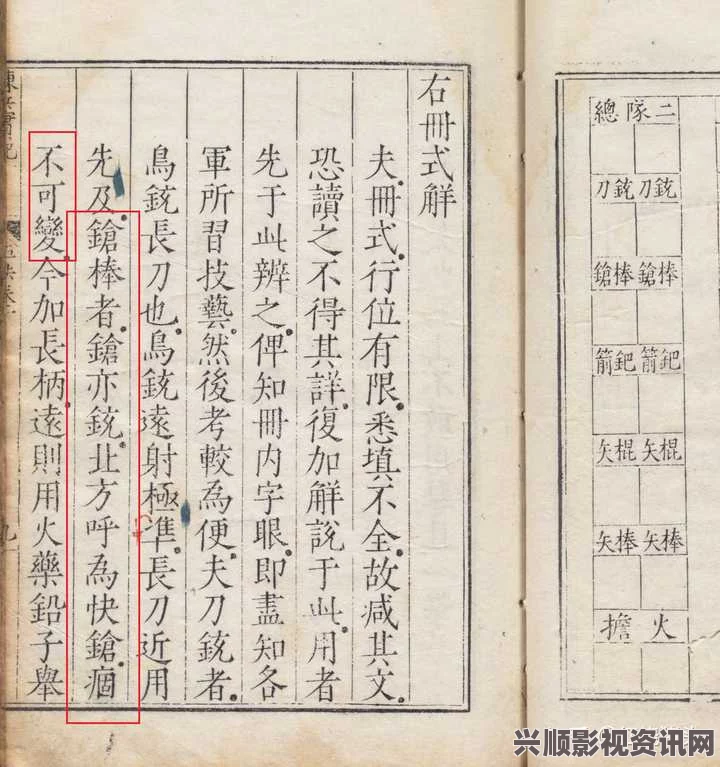 總隊二
刀銃 刀銃
鎗棒 鎗棒
箭鈀 箭鈀
矢棍 矢棍
矢棒 矢棒
擔火
右冊式解
夫冊式行位有限悉填不全故减其文
恐讀之不得其詳復加解說于此用者
先于此辨之俾知冊内字眼即盡知各
軍所習技藝然後考較為便夫刀銃者
鳥銃長刀也鳥銃遠射極準長刀近用
先及鎗棒者鎗亦銃北方呼為快鎗痼
不可變今加長柄遠則用火藥鉛子舉
九
兴顺影视资讯网
www.ynxingshun.com